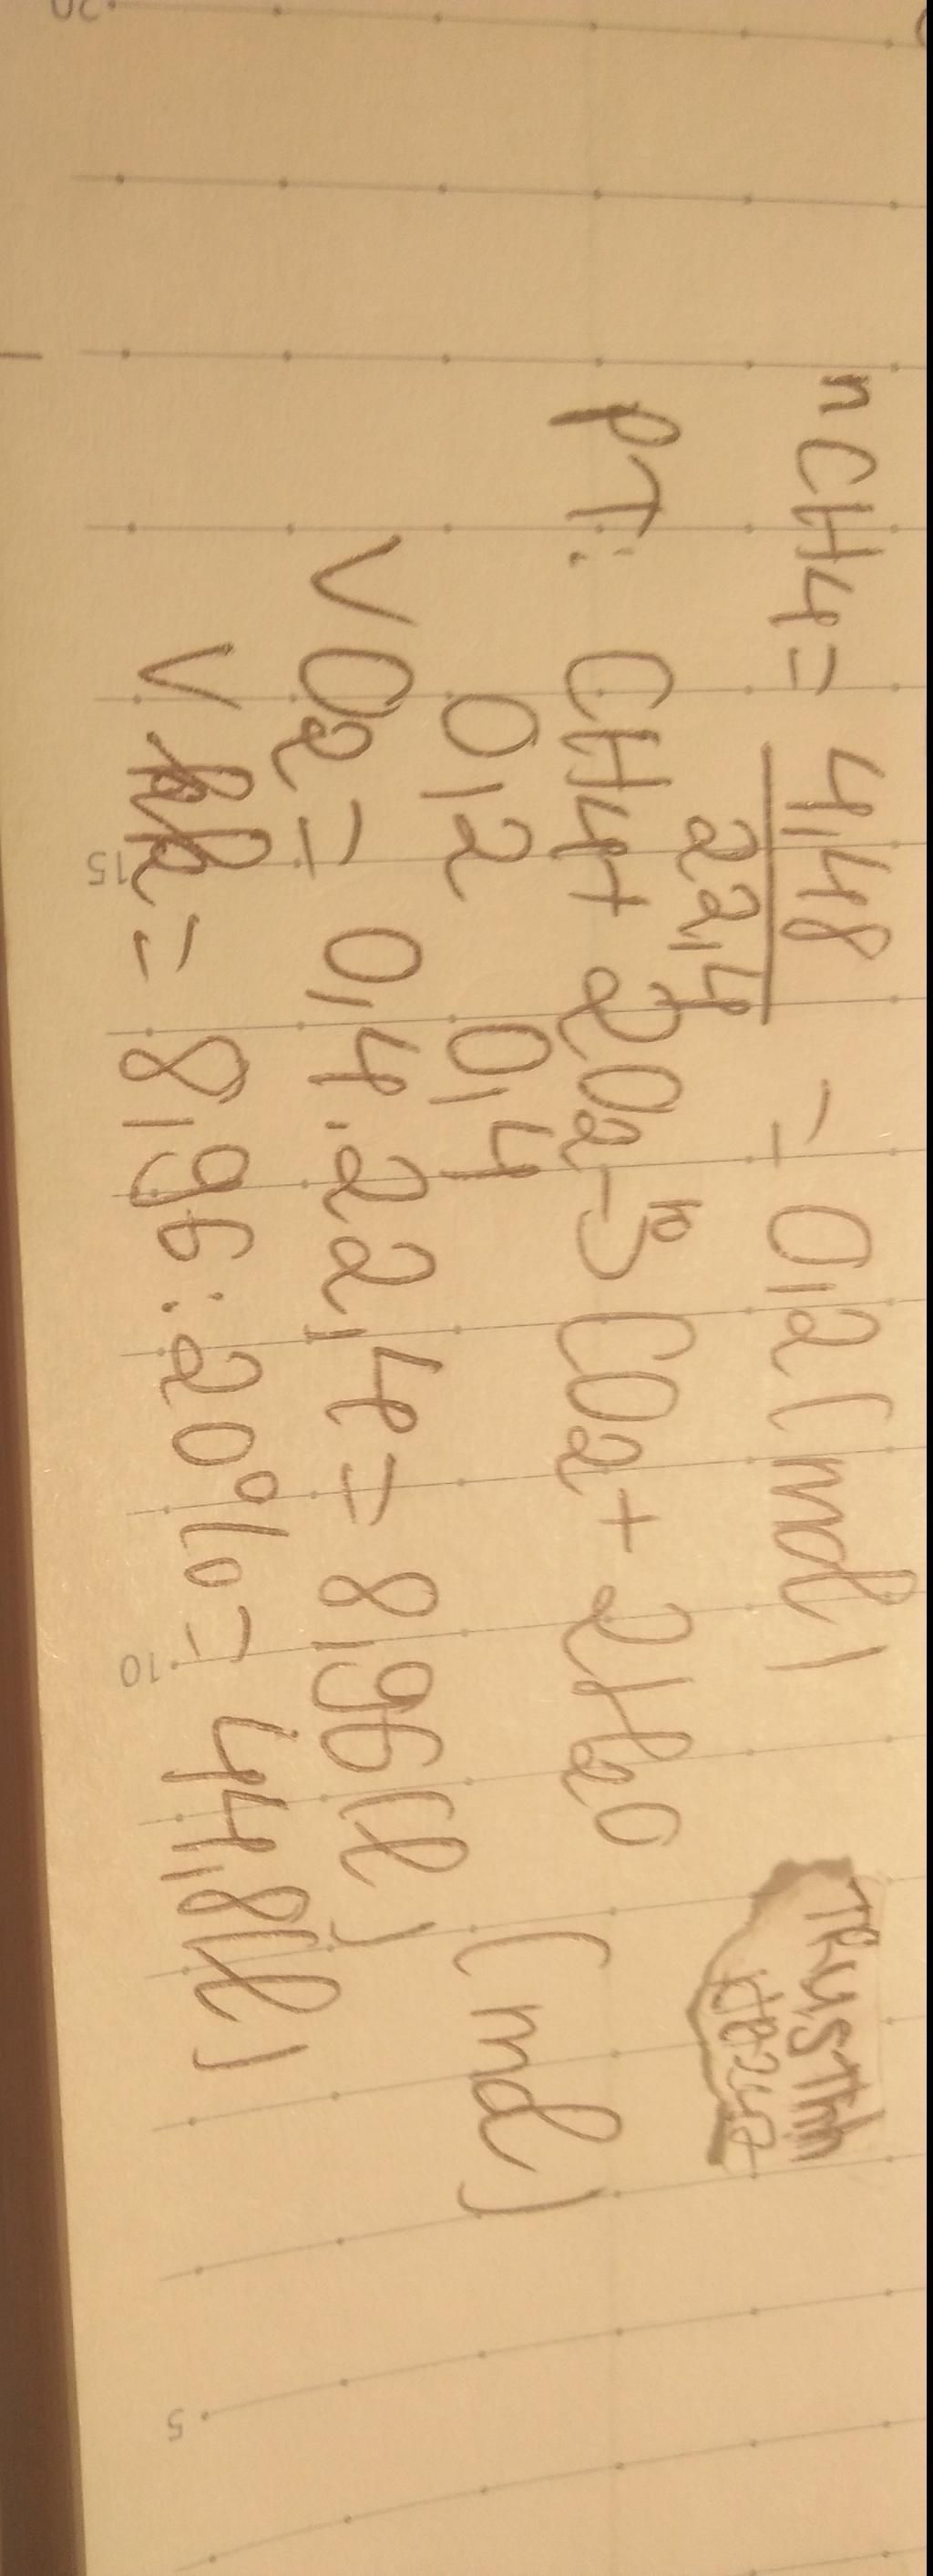 nCH4 = 4,48
22,4
= 0,2 (mol)
PT: CH4 + 2O2 -> CO2 + 2H2O
to
0,2 0,4 (mol)
VO2 = 0,4.22,4 = 8,96 (l)
Vkk = 8,96 : 20% = 44,8 (l)
20
15
10
5